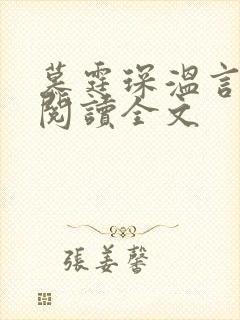 墓霆琛溫言
閱讀全文
張姜馨